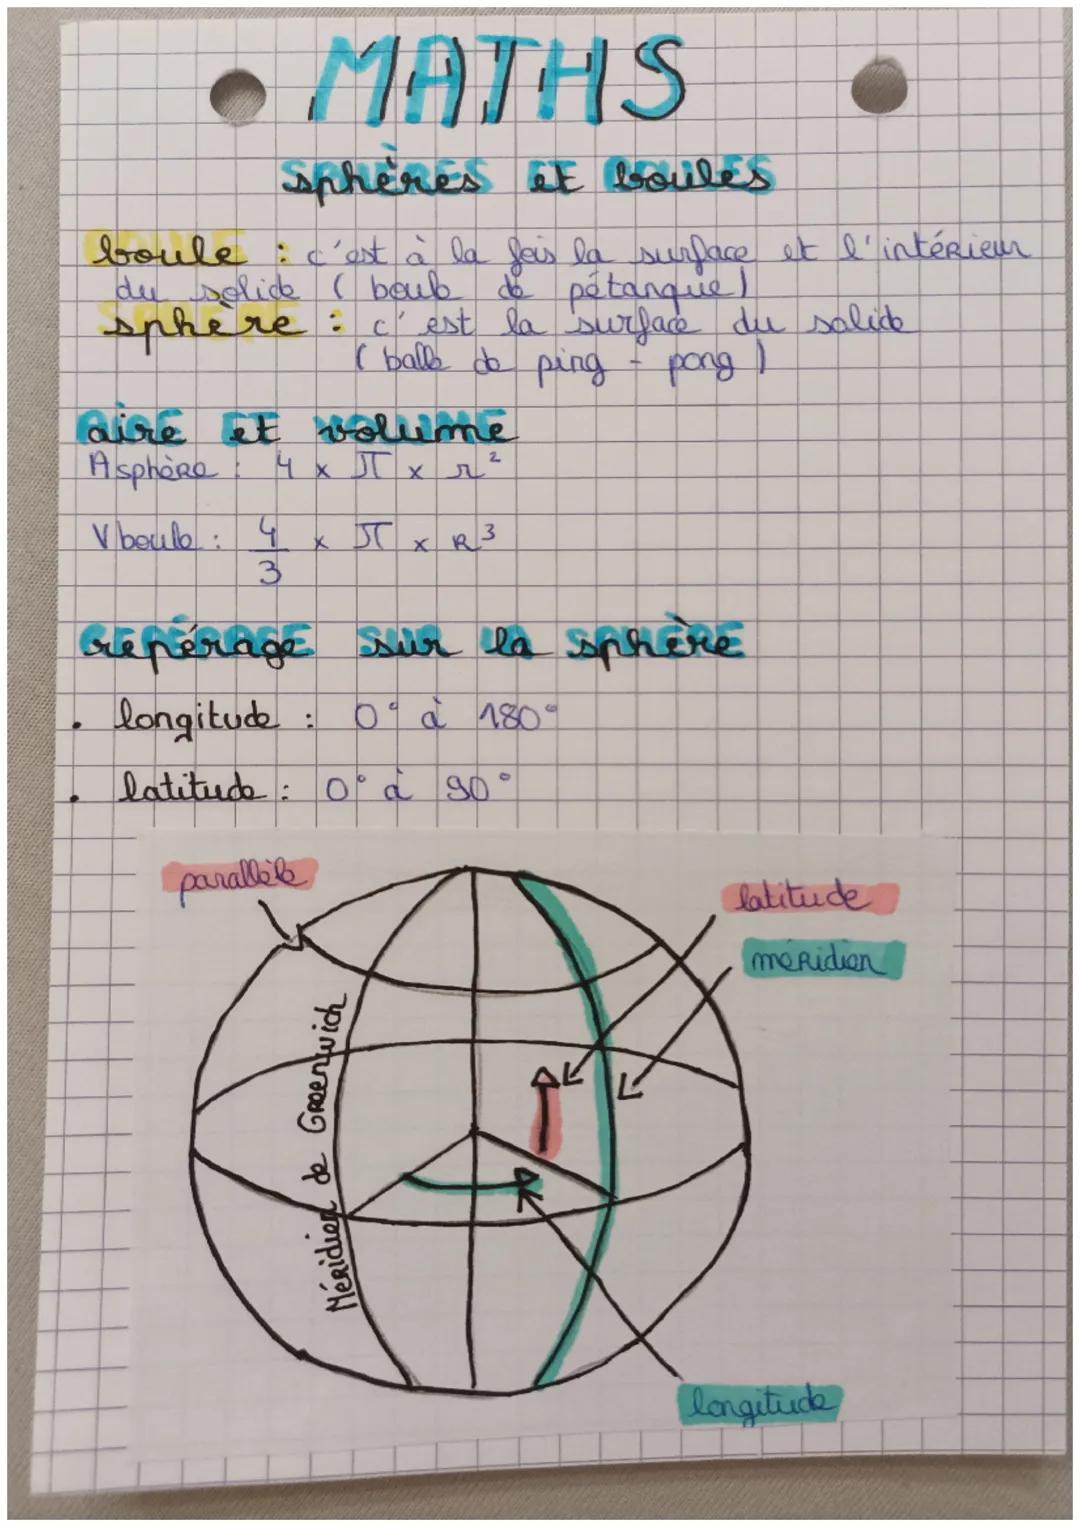 MATHS
sphères et boules
boule : c'est à la fois la surface et l'intérieur
du solide ( boule de pétanque )
sphère : c'est la surface du solide
( balle de ping - pong )
aire et volume
A sphère : 4 x π x r²
V boule : 4/3 x π x R³
repérage sur la sphère
• longitude : 0° à 180°
• latitude : 0° à 90°
parallèle
latitude
méridien
Méridien de Greenwich
longitude